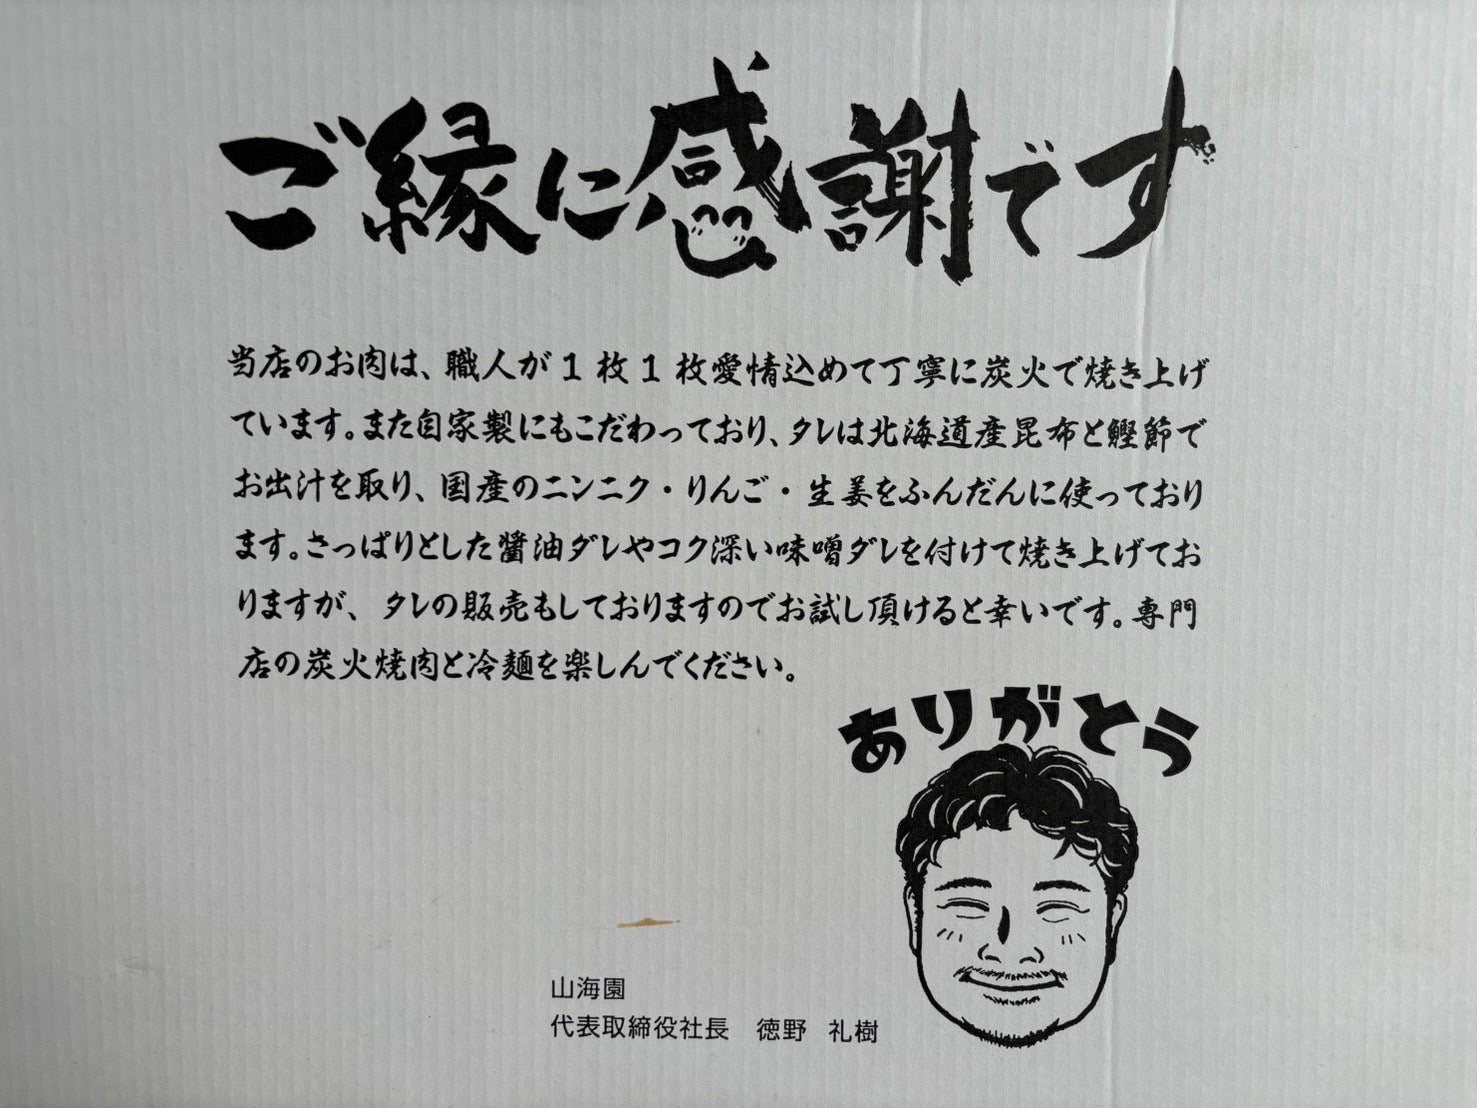 ご縁に感謝です
当店のお肉は、職人が1枚1枚愛情込めて丁寧に炭火で焼き上げ
ています。また自家製にもこだわっており、タレは北海道産昆布と鰹節で
お出汁を取り、国産のニンニク・りんご・生姜をふんだんに使っており
ます。さっぱりとした醤油ダレやコク深い味噌ダレを付けて焼き上げてお
りますが、タレの販売もしておりますのでお試し頂けると幸いです。専門
店の炭火焼肉と冷麺を楽しんでください。
ありがとう
山海園
代表取締役社長 徳野 礼樹